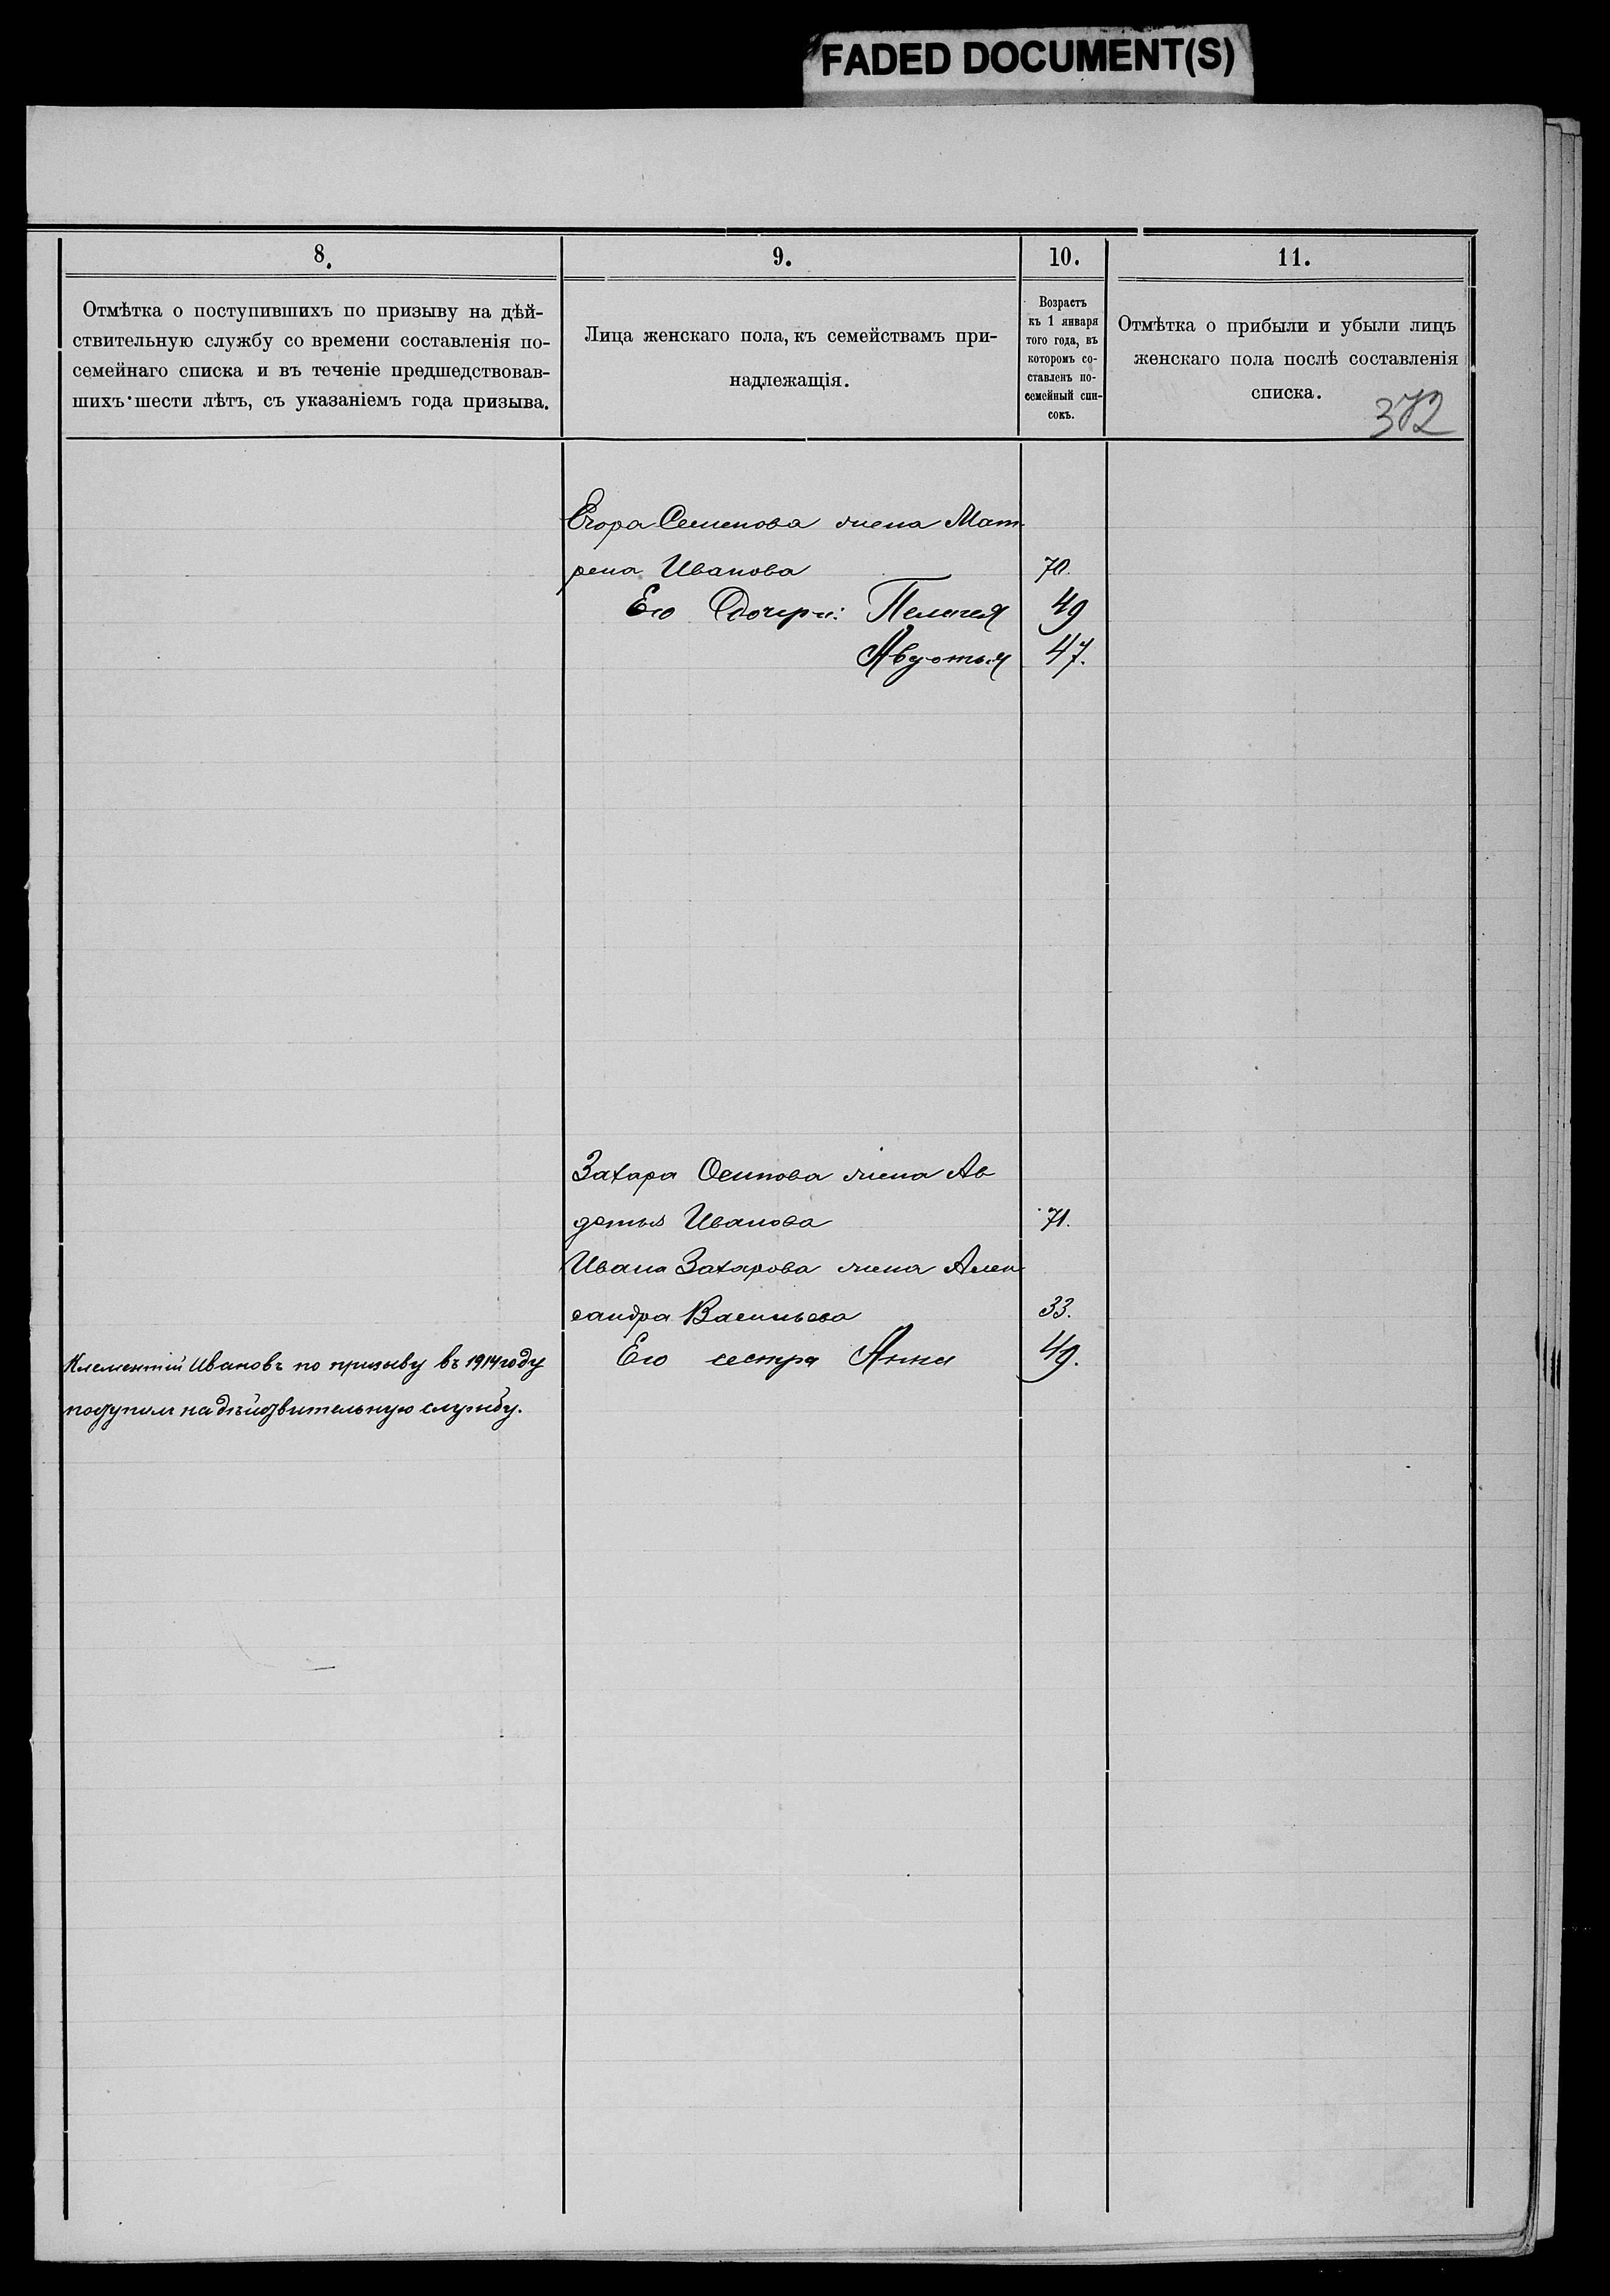 FADED DOCUMENT(S)
8.
Отмѣтка о поступившихъ по призыву на дѣй-
ствительную службу со времени составленія по-
семейнаго списка и въ теченіе предшедствовав-
шихъ шести лѣтъ, съ указаніемъ года призыва.
9.
Лица женскаго пола, къ семействамъ при-
надлежащія.
10.
Возрастъ
къ 1 января
того года, въ
которомъ со-
ставленъ по-
семейный спи-
сокъ.
11.
Отмѣтка о прибыли и убыли лицъ
женскаго пола послѣ составленія
списка.
372
Егора Семенова жена Мат
рена Иванова 70.
Его дочери: Пелагея 49
Авдотья 47.
Захара Осипова жена Ав
дотья Иванова 71.
Ивана Захарова жена Алек
сандра Васильева 33.
Его сестра Анна 49.
Клементій Ивановъ по призыву въ 1914 году
поступил на дѣйствительную службу.